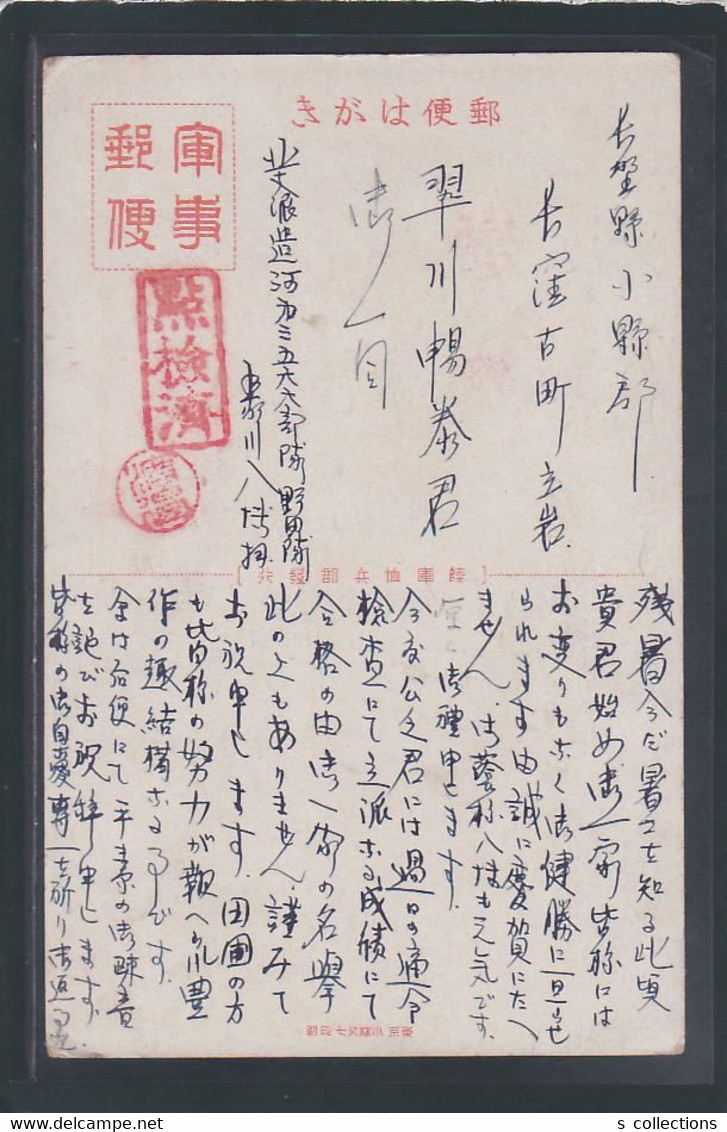 郵便はがき
軍事
郵便
點檢濟
長野縣小縣郡
長窪古町立岩
翠川暢泰君
御一同
北支派遣河第三五六六部隊野田隊
陸軍恤兵部發行
残暑今だ暑さを知る此頃
貴君始め御一家皆様には
お変りもなく御健勝に
られます由誠に慶賀にたへ
ません、御蔭様八博も元気です。
御禮申します。
今度公文君には過日の適令
検査にて立派なる成績にて
合格の由御一家の名譽
此の上もありません。謹みて
お祝申します。田圃の方
も皆様の努力が報へられ豊
作の趣結構なる事です。
先は右便にて平素の御疎音
を詑びお祝辞申します。
皆様の御自愛専一を祈り
s collections